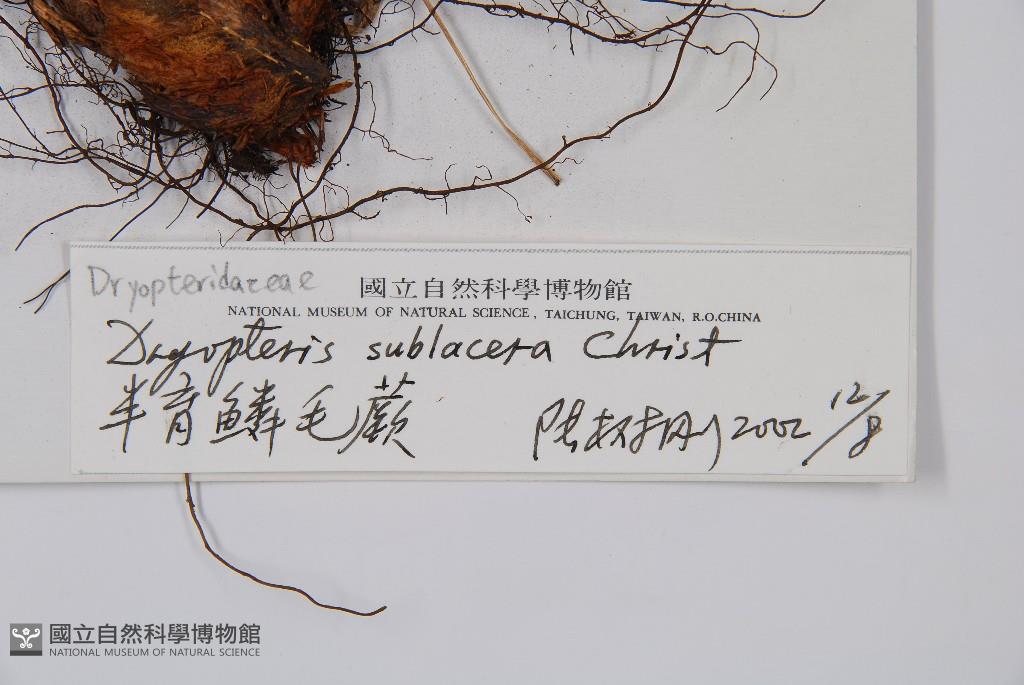 Dryopteridaceae
國立自然科學博物館
NATIONAL MUSEUM OF NATURAL SCIENCE, TAICHUNG, TAIWAN, R.O.CHINA
Dryopteris sublacera Christ
半育鱗毛蕨
2002 12/8
國立自然科學博物館
NATIONAL MUSEUM OF NATURAL SCIENCE